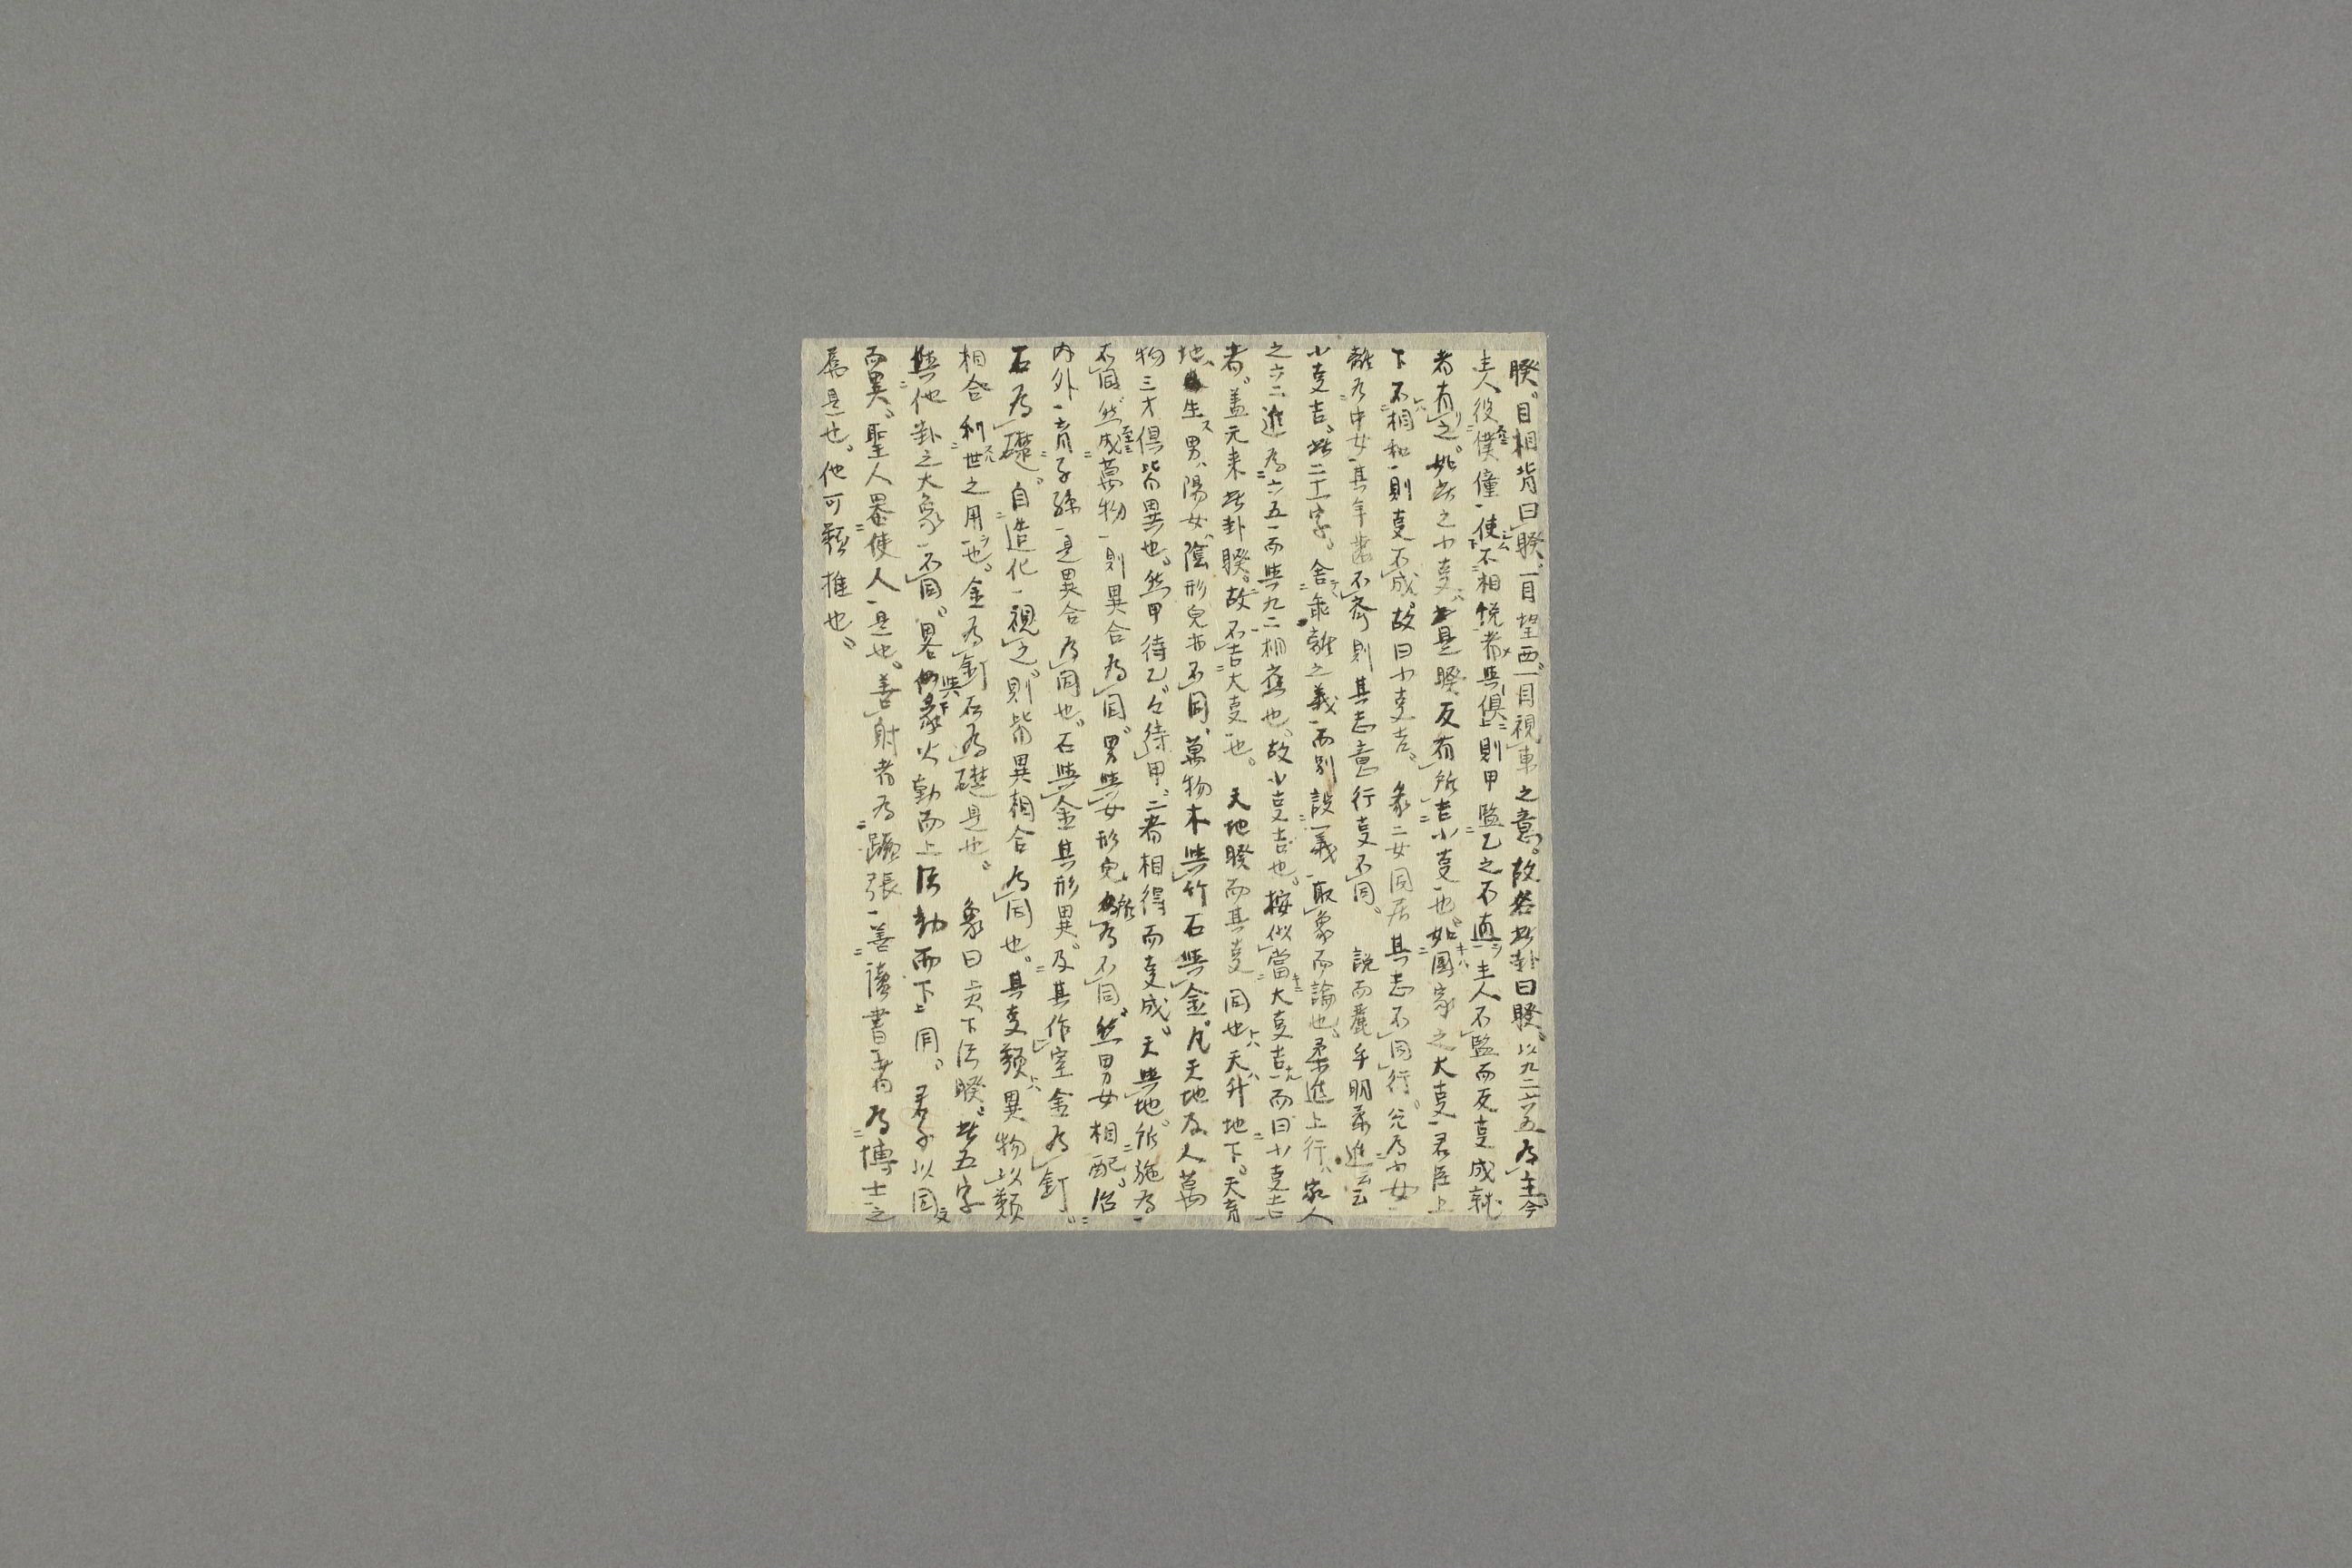 睽、目相背曰睽、一目望西、一目視東之意。故名此卦曰睽、以九二六五為主。今
主人役僕僮一使不相悦者与倶、則甲監乙之不直、主人不監而反事成就
者有之。如此之小事、是睽反有所吉小事也。如国家之大事、君臣上
下不相和則事不成、故曰小事吉。 彖二女同居其志不同行、兌為少女
離為中女、其年歯不斉則其志意行事不同。 説而麗乎明柔進云云
小事吉、此二十字、舎乖離之義而別設一義、取象而論也。柔進上行、家人
之六二進為六五而与九二相應也、故小事吉也。按似當大事吉、而曰小事吉
者、蓋元来此卦睽、故不吉大事也。 天地睽而其事同也、天升地下、天育
地生、男陽女陰形皃亦不同、萬物木与竹石与金、凡天地及人萬
物三才倶皆異也。然甲待乙、乙待甲、二者相得而事成、天与地所施為
不同、然成萬物則異合為同、男与女形皃所為不同、然男女相配、治
内外育子孫是異合為同也。石与金其形異、及其作室金為釘、
石為礎、自造化視之、則皆異相合為同也。其事類異物以類
相合利世之用也。金為釘与石為礎是也。 象曰上火下沢睽、此五字
与他卦之大象不同、畧彖火動而上沢動而下上同。君子以同
而異、聖人器使人是也。善射者為蹶張、善讀書者為博士之
属是也。他可類推也。